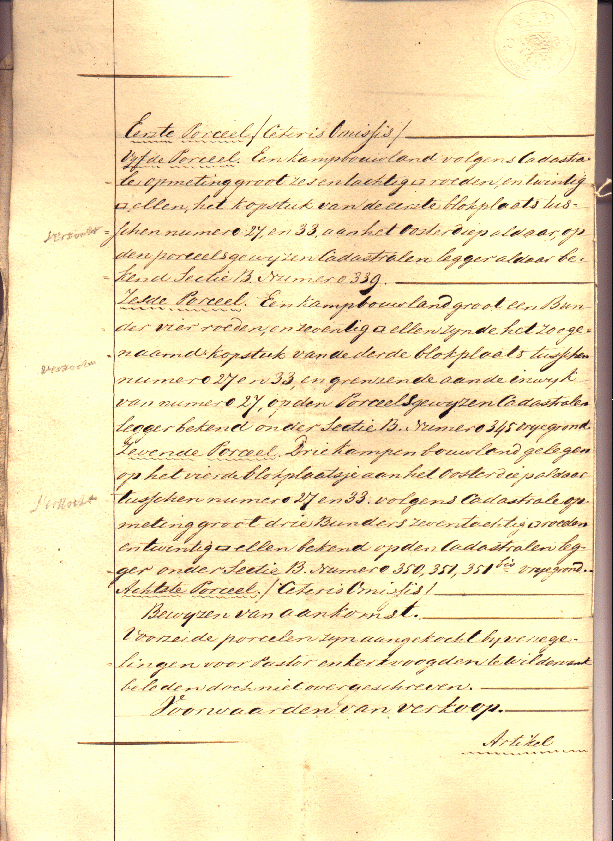 Eerste Perceel /Ceteris Omissis/
Vyfde Perceel. Een kamp bouwland volgens Cadastra-
le opmeting groot zes en tachtig □ roeden, en twintig
□ ellen, het kopstuk van de eerste blokplaats tus-
schen numero 27 en 33 aan het Oosterdiep aldaar, op
den perceelsgewyzen Cadastralen legger aldaar be-
kend Sectie B. Numero 339.
Zesde Perceel. Een kamp bouwland groot een Bun-
der vier roeden, en zeventig □ ellen zynde het zooge-
naamde kopstuk van de derde blokplaats tusschen
numero 27 en 33, en grenzende aan de inwyk
van numero 27, op den Perceelsgewyzen Cadastralen
legger bekend onder Sectie B. Numero 345 vrye grond
Zevende Perceel. Drie kampen bouwland gelegen
op het vierde blokplaatsje aan het Oosterdiep aldaar
tusschen numero 27 en 33. volgens Cadastrale op-
meting groot drie Bunders zeventachtig □ roeden
en twintig □ ellen bekend op den Cadastralen leg-
ger onder Sectie B. Numero 350, 351, 351 bis vrye grond.
Achtste Perceel. /Ceteris Omissis/
Bewyzen van aankomst.
Voorzeide percelen zyn aangekocht by verzege-
lingen voor Pastor en kerkvoogden te Wildervank
beleden doch niet overgeschreven.
Voorwaarden van verkoop.
Artikel